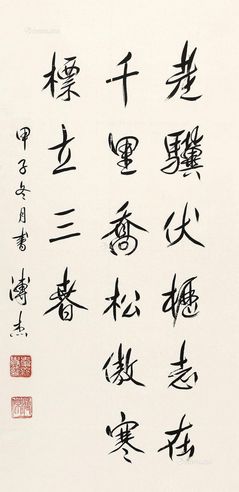 老骥伏櫪志在
千里喬松傲寒
標立三春
甲子冬月書 溥杰